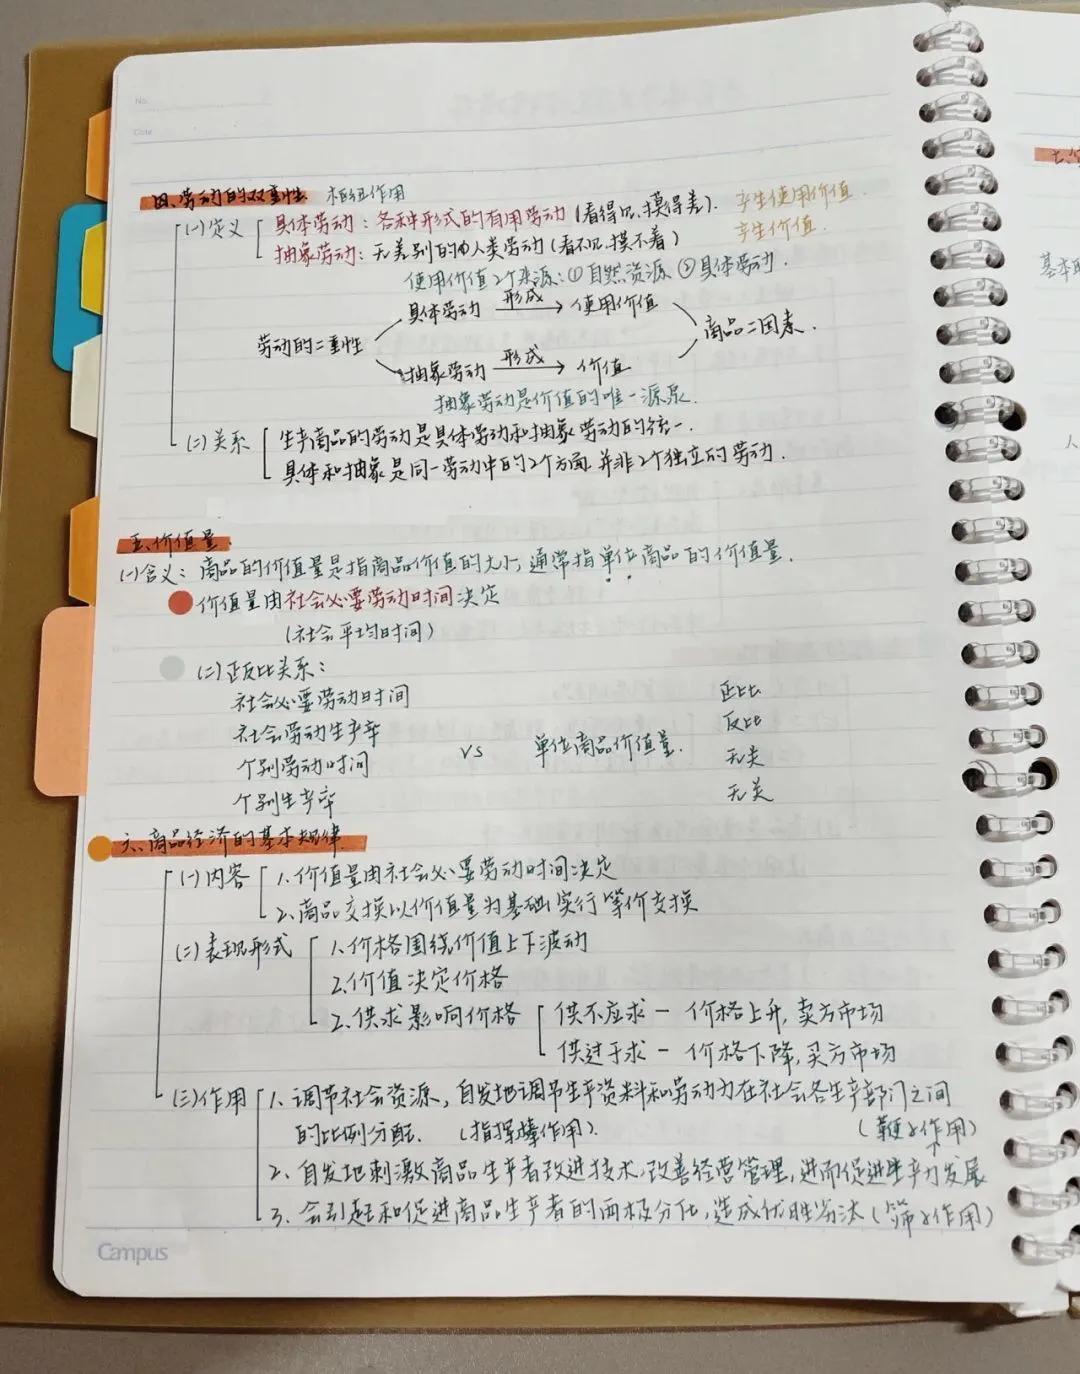 No.
Date
四、劳动的双重性 相纽作用
(一)定义 具体劳动：各种形式的有用劳动(看得见、摸得着). 产生使用价值.
抽象劳动：无差别的人类劳动(看不见摸不着) 产生价值.
使用价值2个来源：①自然资源 ②具体劳动.
具体劳动 形成→ 使用价值
劳动的二重性 商品二因素.
抽象劳动 形成→ 价值
抽象劳动是价值的唯一源泉.
(二)关系 生产商品的劳动是具体劳动和抽象劳动的统一.
具体和抽象是同一劳动中的2个方面,并非2个独立的劳动.
五、价值量.
(一)含义：商品的价值量是指商品价值的大小,通常指单位商品的价值量.
价值量由社会必要劳动时间决定
(社会平均时间)
(二)正反比关系：
社会必要劳动时间 正比
社会劳动生产率 反比
个别劳动时间 vs 单位商品价值量. 无关
个别生产率 无关
六、商品经济的基本规律
(一)内容 1.价值量由社会必要劳动时间决定
2.商品交换以价值量为基础,实行等价交换
(二)表现形式 1.价格围绕价值上下波动
2.价值决定价格
2.供求影响价格 供不应求 — 价格上升,卖方市场
供过于求 — 价格下降,买方市场
(三)作用 1.调节社会资源,自发地调节生产资料和劳动力在社会各生产部门之间
的比例分配. (指挥棒作用). (鞭子作用)
2.自发地刺激商品生产者改进技术,改善经营管理,进而促进生产力发展
3.会引起和促进商品生产者的两极分化,造成优胜劣汰(筛子作用)
Campus
基本
人